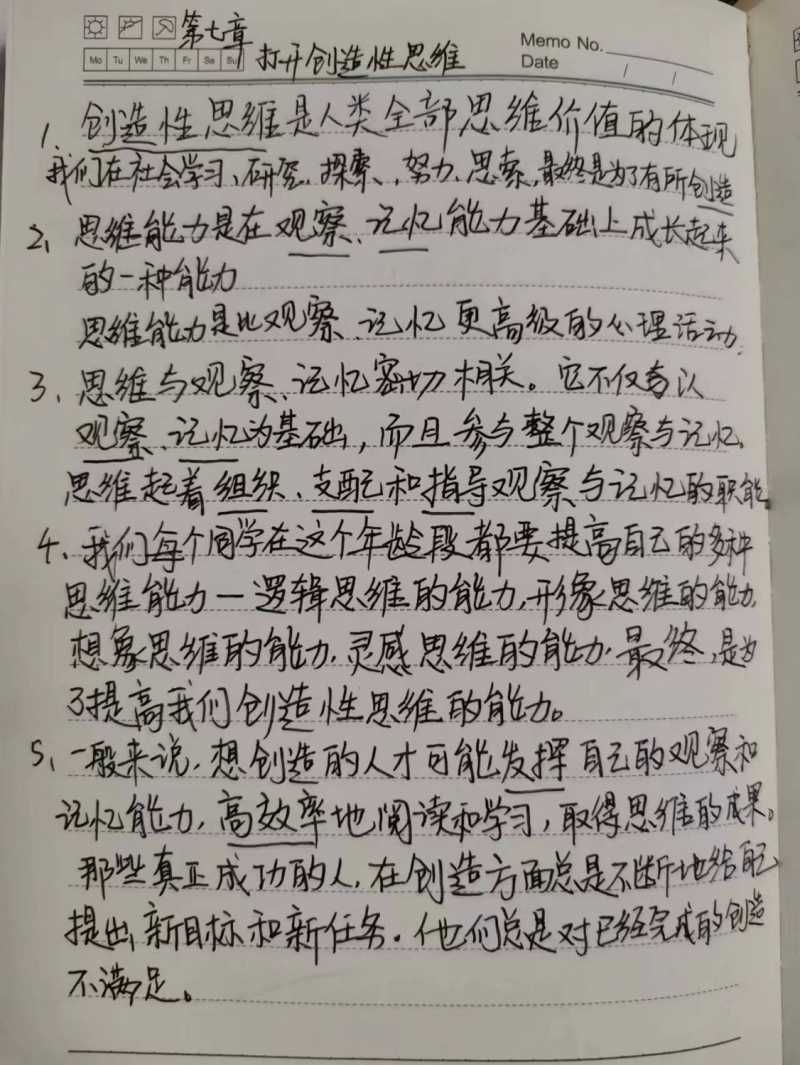 第七章
Memo No.
Mo Tu We Th Fr Sa Su
打开创造性思维
Date / /
1、创造性思维是人类全部思维价值的体现
我们在社会学习、研究、探索、努力、思索,最终是为了有所创造
2、思维能力是在观察、记忆能力基础上成长起来
的一种能力
思维能力是比观察、记忆更高级的心理活动.
3、思维与观察、记忆密切相关。它不仅以
观察、记忆为基础,而且参与整个观察与记忆、
思维起着组织、支配和指导观察与记忆的职能。
4、我们每个同学在这个年龄段都要提高自己的多种
思维能力—逻辑思维的能力,形象思维的能力,
想象思维的能力,灵感思维的能力,最终,是为
了提高我们创造性思维的能力。
5、一般来说,想创造的人才可能发挥自己的观察和
记忆能力,高效率地阅读和学习,取得思维的成果。
那些真正成功的人,在创造方面总是不断地给自己
提出新目标和新任务.他们总是对已经完成的创造
不满足。